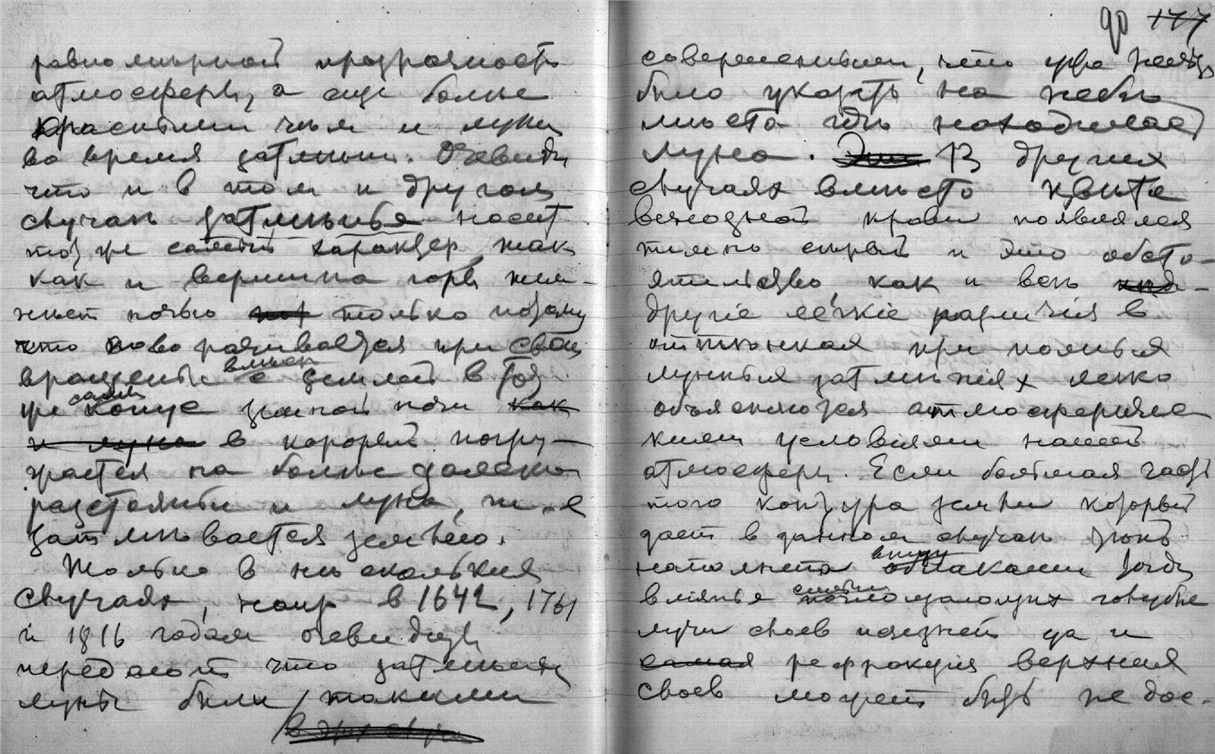 равномерной прозрачность
атмосферы, а еще более
красными чем и луны
во время затмении. Очевидн
что и в том и другом
случаѣ затмѣнья носит
тот же самый характер, так
как и вершина горы тем-
нѣет ночью только потому
что поворачивается при своем
вращеньи вмѣсте с землей в тоз
же самый конус земной ночи как
и луна в который погру-
жается на болѣе далеком
разстояньи и луна,
затмѣвается землею.
Только в нѣскольких
случаях, напр в 1642, 1761
и 1816 годам очевидцы
передают что затмѣнья
луны были такими
90 177
совершенными, что нельзя
было указать на небѣ
мѣста гдѣ находилась
луна. Эти В других
случаях вмѣсто цвѣта
венозной крови появлялся
темно сѣрый и это обсто-
ятельство, как и всѣ
другiе легкiе различiя в
оттѣнках при полных
лунных затмѣнiях легко
объясняются атмосфериче
скими условiями нашей
атмосферы. Если большая часть
того контура земли который
дает в данном случаѣ
наполнена внизу облаками
влiянье сильно поглощающих голубые
лучи слоев нижней да и
самая рефракцiя верхних
слоев может быть не дос-